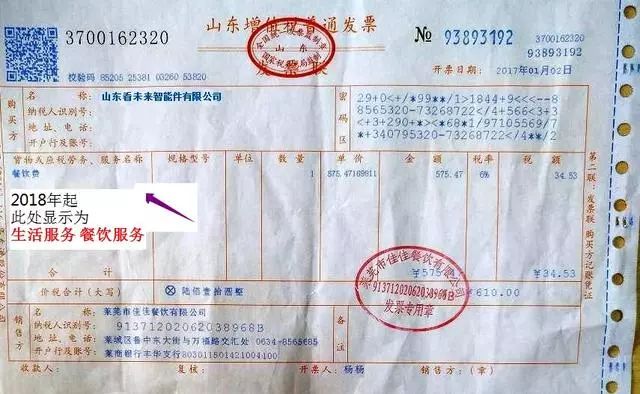 3700162320
山东增值税普通发票
№ 93893192
93893192
校验码 85205 25381 03260 53820
开票日期：2017年01月02日
购买方
名称：山东看未来智能件有限公司
纳税人识别号：
地址、电话：
开户行及账号：
密码区
29+0<+/*99**/1>1844+9<<--8
8565320-73268722/+566<3+3
<+3+290+><*68*1/97105569/7
*+340795320-73268722/4**/2
货物或应税劳务、服务名称 规格型号 单位 数量 单价 金额 税率 税额
餐饮费 1 575.47169811 575.47 6% 34.53
2018年起
此处显示为
生活服务 餐饮服务
合计 ¥575.47 ¥34.53
价税合计（大写） ⊗ 陆佰壹拾圆整 ¥610.00
销售方
名称：莱芜市佳佳餐饮有限公司
纳税人识别号：91371202062038968B
地址、电话：莱城区鲁中东大街与万福路交汇处 0634-8565685
开户行及账号：莱商银行丰华支行803011501421004100
备注
莱芜市佳佳餐饮有限公司
91371202062038968B
发票专用章
收款人： 复核： 开票人：杨杨 销售方：（章）
第二联：发票联 购买方记账凭证